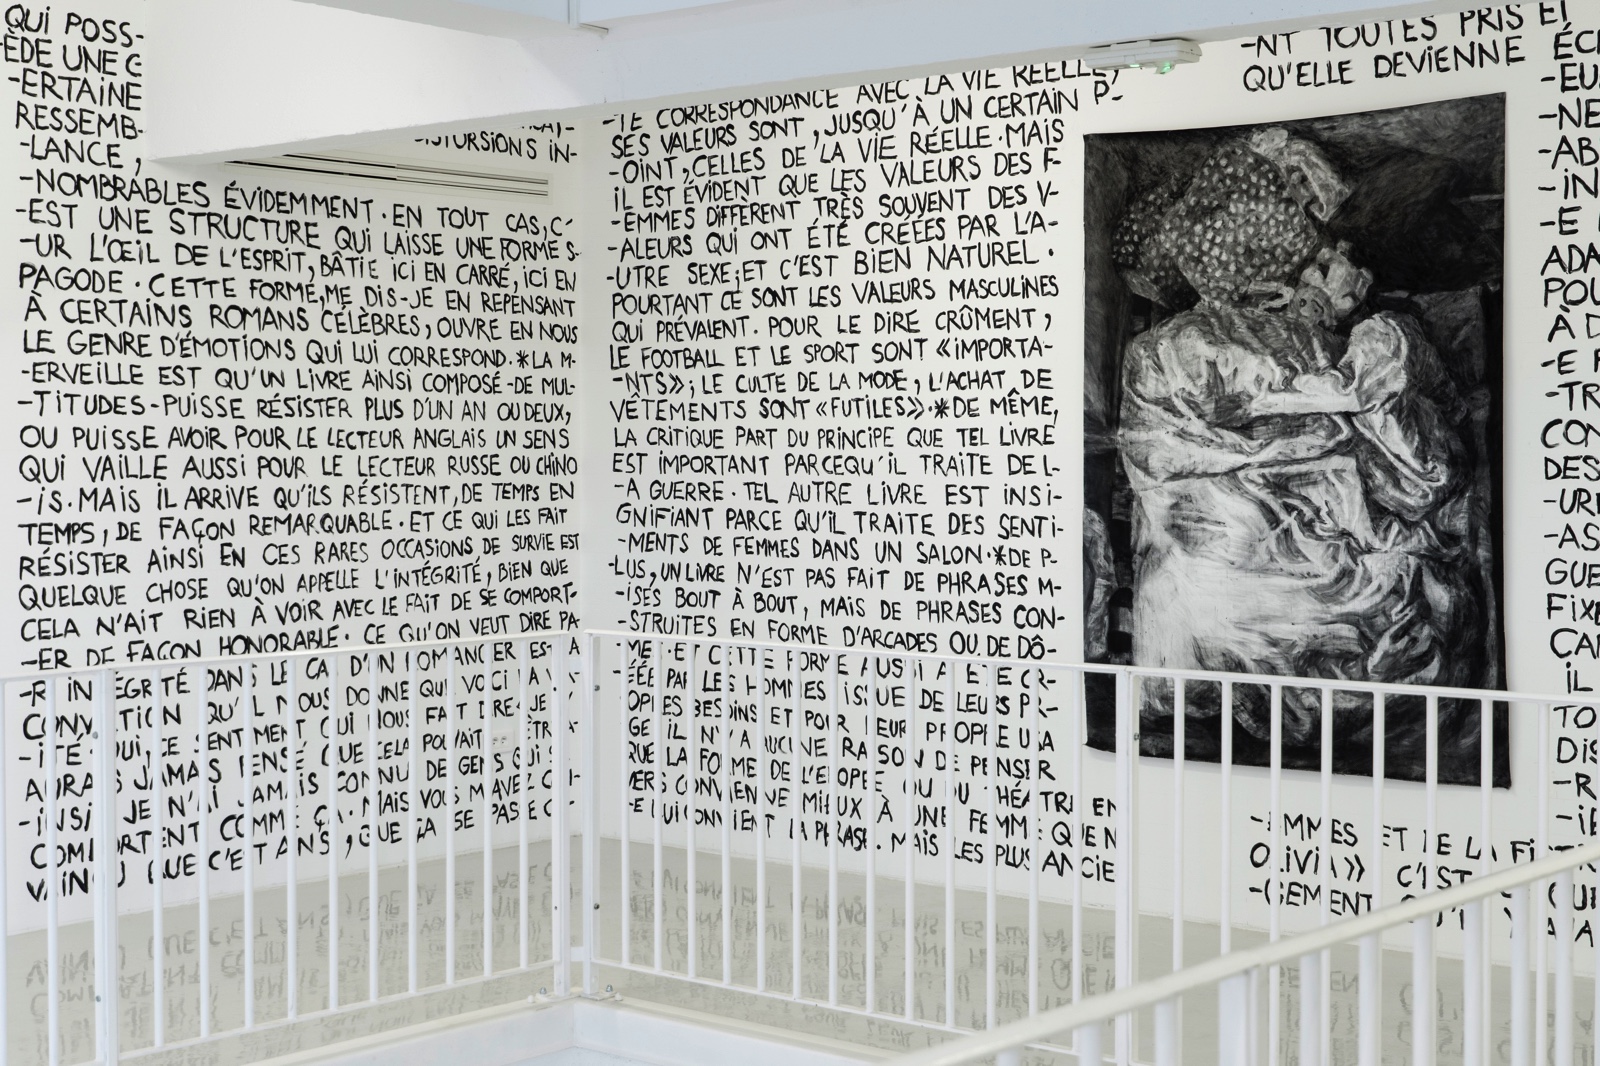 QUI POSS-
-ÈDE UNE C
-ERTAINE
RESSEMB-
-LANCE,
-ISTORSIONS IN-
-NOMBRABLES ÉVIDEMMENT. EN TOUT CAS, C'
-EST UNE STRUCTURE QUI LAISSE UNE FORME S-
-UR L'ŒIL DE L'ESPRIT, BÂTIE ICI EN CARRÉ, ICI EN
PAGODE. CETTE FORME, ME DIS-JE EN REPENSANT
À CERTAINS ROMANS CÉLÈBRES, OUVRE EN NOUS
LE GENRE D'ÉMOTIONS QUI LUI CORRESPOND. *LA M-
-ERVEILLE EST QU'UN LIVRE AINSI COMPOSÉ - DE MUL-
-TITUDES - PUISSE RÉSISTER PLUS D'UN AN OU DEUX,
OU PUISSE AVOIR POUR LE LECTEUR ANGLAIS UN SENS
QUI VAILLE AUSSI POUR LE LECTEUR RUSSE OU CHINO
-IS. MAIS IL ARRIVE QU'ILS RÉSISTENT, DE TEMPS EN
TEMPS, DE FAÇON REMARQUABLE. ET CE QUI LES FAIT
RÉSISTER AINSI EN CES RARES OCCASIONS DE SURVIE EST
QUELQUE CHOSE QU'ON APPELLE L'INTÉGRITÉ, BIEN QUE
CELA N'AIT RIEN À VOIR AVEC LE FAIT DE SE COMPORT-
-ER DE FAÇON HONORABLE. CE QU'ON VEUT DIRE PA
-R INTÉGRITÉ DANS LE CAS D'UN ROMANCIER EST LA
CONVICTION QU'IL NOUS DONNE QUE VOICI LA V
-ITÉ. OUI, CE SENTIMENT QUI NOUS FAIT DIRE « JE
AURAIS JAMAIS PENSÉ QUE CELA POUVAIT ÊTR
-INSI JE N'AI JAMAIS CONNU DE GENS QUI SE
COMPORTENT COMME ÇA. MAIS VOUS M'AVEZ CON-
VAINCU QUE C'EST AINSI, QUE ÇA SE PASSE
-TE CORRESPONDANCE AVEC LA VIE RÉELLE,
SES VALEURS SONT, JUSQU'À UN CERTAIN P-
-OINT, CELLES DE LA VIE RÉELLE. MAIS
IL EST ÉVIDENT QUE LES VALEURS DES F-
-EMMES DIFFÈRENT TRÈS SOUVENT DES V-
-ALEURS QUI ONT ÉTÉ CRÉÉES PAR L'A-
-UTRE SEXE; ET C'EST BIEN NATUREL.
POURTANT CE SONT LES VALEURS MASCULINES
QUI PRÉVALENT. POUR LE DIRE CRÛMENT,
LE FOOTBALL ET LE SPORT SONT «IMPORTA-
-NTS»; LE CULTE DE LA MODE, L'ACHAT DE
VÊTEMENTS SONT «FUTILES». *DE MÊME,
LA CRITIQUE PART DU PRINCIPE QUE TEL LIVRE
EST IMPORTANT PARCEQU'IL TRAITE DE L-
-A GUERRE. TEL AUTRE LIVRE EST INSI-
GNIFIANT PARCE QU'IL TRAITE DES SENTI-
-MENTS DE FEMMES DANS UN SALON. *DE P-
-LUS, UN LIVRE N'EST PAS FAIT DE PHRASES M-
-ISES BOUT À BOUT, MAIS DE PHRASES CON-
-STRUITES EN FORME D'ARCADES OU DE DÔ-
-ME. ET CETTE FORME AUSSI A ÉTÉ CR-
-ÉÉE PAR LES HOMMES ISSUE DE LEURS PR-
OPRES BESOINS ET POUR LEUR PROPRE USA
GE IL N'Y A AUCUNE RAISON DE PENSER
QUE LA FORME DE L'ÉPOPÉE OU DU THÉÂTRE EN
VERS CONVIENNE MIEUX À UNE FEMME QUE N
-E LUI CONVIENT LA PHRASE. MAIS LES PLUS ANCIE
-NT TOUTES PRIS
QU'ELLE DEVIENNE
-EMMES ET DE LA FI
OLIVIA» C'EST
-GEMENT
ET
ÉC
-EU
-NE
-AB
-IN
-E
ADA
POU
À D
-E F
-TR
CON
DES
-URE
-AS
GUE
FIXE
CAR
IL
TO
DIS
-R
-IE